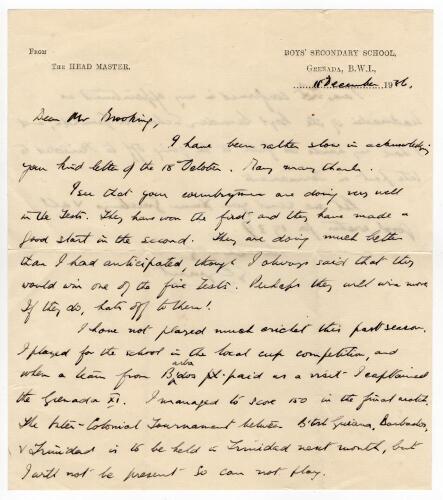 FROM
THE HEAD MASTER.
BOYS' SECONDARY SCHOOL,
GRENADA, B.W.I.,
December 1936.
Dear Mr Brooking,
I have been rather slow in acknowledging
your kind letter of the 18 October. Many many thanks.
I see that your countrymen are doing very well
in the Tests. They have won the first, and they have made a
good start in the second. They are doing much better
than I had anticipated, though I always said that they
would win one of the five Tests. Perhaps they will win more
If they do, hats off to them!
I have not played much cricket this past season.
I played for the school in the local cup competition, and
when a team from B'dos paid us a visit I captained
the Grenada XI. I managed to score 150 in the final match.
The Inter-Colonial Tournament between B'tish Guiana, Barbados,
& Trinidad is to be held in Trinidad next month, but
I will not be present so can not play.